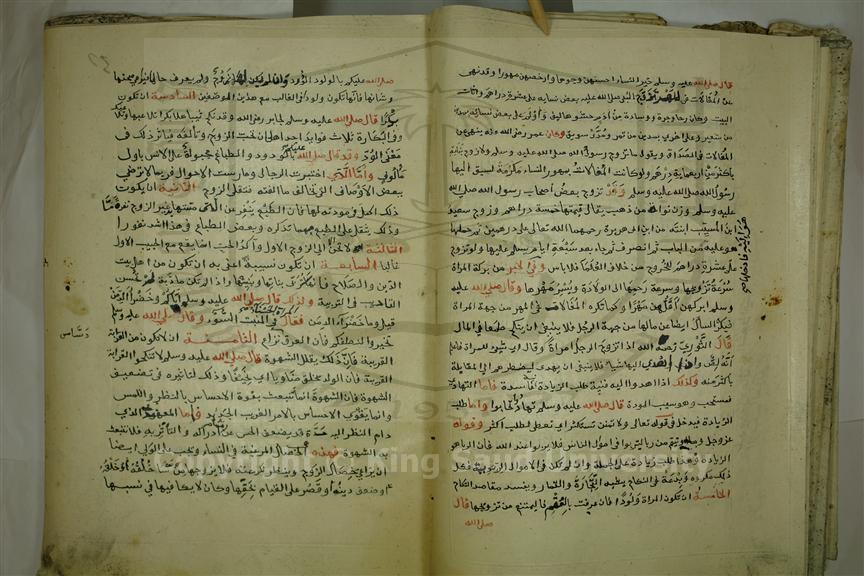 قال صلى الله عليه وسلم خير النساء احسنهن وجوها وارخصهن مهورا وقد نهى
عن المغالات في المهر تزوج النبي صلى الله عليه بعض نسايه على عشرة دراهم واثاث
البيت وكان رحا وجرة ووسادة من ادم حشوها ليف واولم على بعض نسايه بمدين
من شعير وعلى اخرى بمدين من تمر ومدين سويق وكان عمر رضي الله عنه ينهى عن
المغالات في الصداق ويقول ما تزوج رسول الله صلى الله عليه وسلم ولا زوج بناته
باكثر من اربعماية درهم ولو كانت المغالات بمهور النساء مكرمة لسبق اليها
رسول الله صلى الله عليه وسلم وقد تزوج بعض اصحاب رسول الله صلى الله
عليه وسلم وزن نواة من ذهب يقال قيمتها خمسة دراهم وزوج سعيد
ابن المسيب ابنته من ابي هريرة رحمهما الله تعالى على درهمين ثم حملها
هو عليه من الباب ثم انصرف ثم جاء بعد سبعة ايام يسلم عليها ولو تزوج
على عشرة دراهم للخروج من خلاف العلما فلا باس وفي الخبر من بركة المراة
سرعة تزويجها وسرعة رحمها الى الولادة ويسر مهرها وقال صلى الله عليه
وسلم ابركهن اقلهن مهرا وكما تكره المغالات في المهر من جهة المراة
فيكره السؤال ايضا عن مالها من جهة الرجل فلا ينبغي ان ينكح طمعا في المال
قال الثوري رحمه الله اذا تزوج الرجل المراة وقال اي شي للمراة فاعلم
انه لص واذا اهدى اليها شيا فلا ينبغي ان يهدى ليضطرهم الى المقابلة
باكثر منه وكذلك اذا اهدوا اليه فنية طلب الزيادة فاسدة فاما التهادي
فمستحب وهو سبب المودة قال صلى الله عليه وسلم تهادوا تحابوا واما طلب
الزيادة فيدخل في قوله تعالى ولا تمنن تستكثر اي تعطي لتطلب اكثر وقوله
عز وجل وما اتيتم من ربا ليربوا في اموال الناس فلا يربوا عند الله فان الربا هو
الزيادة وهذا طلب زيادة على الجملة وان لم يكن في الاموال الربوية فكل
ذلك مكروه وبدعة في النكاح يشبه التجارة والقمار ويفسد مقاصد النكاح
الخامسة ان تكون المراة ولودا فان عرفت بالعقم فليمتنع من تزوجها قال
صلى الله
صلى الله عليكم بالولود الودود وان لم يكن لها زوج ولم يعرف حالها فيراعى صحتها
وشبابها فانها تكون ولودا في الغالب مع هذين الوصفين السادسة ان تكون
بكرا قال صلى الله عليه وسلم لجابر رضي الله وقد نكح ثيبا هلا بكرا تلاعبها وتلاعبك
وفي البكارة ثلاث فوايد احداها ان تحب الزوج وتألفه فيؤثر ذلك في
معنى الود وقد قال صلى الله عليكم بالودود والطباع مجبولة على الانس باول
مألوف واما التي اختبرت الرجال ومارست الاحوال فربما لا ترضى
بعض الاوصاف التي تخالف ما الفته فتقلي الزوج الثانية ان يكون
ذلك اكمل في مودته لها فان الطبع ينفر عن التي مسها غير الزوج نفرة ما
وذلك يثقل على الطبع مهما تذكره وبعض الطباع في هذا اشد نفورا
الثالثة لا تحن الى الزوج الاول واكد الحب ما يقع مع الحبيب الاول
غالبا السابعة ان تكون نسيبة اعني به ان تكون من اهل بيت
الدين والصلاح فانها تربى بناتها وبنيها واذا لم تكن مادبة لم تحسن
التاديب في التربية ولذلك قال صلى الله عليه وسلم اياكم وخضراء الدمن
قيل وما خضراء الدمن فقال في المنبت السوء وقال صلى الله عليه وسلم
تخيروا لنطفكم فان العرق نزاع الثامنة ان لا تكون من القرابة
القريبة فان ذلك يقلل الشهوة قال صلى الله عليه وسلم لا تنكحوا القرابة
القريبة فان الولد يخلق ضاويا اي نحيفا وذلك لتاثيره في تضعيف
الشهوة فان الشهوة انما تنبعث بقوة الاحساس بالنظر واللمس
وانما يقوى الاحساس بالامر الغريب الجديد واما المعهود الذي
دام النظر اليه مدة فيضعف الحس عن ادراكه والتاثر به فلا تنبعث
به الشهوة فهذه الخصال المرغبة في النساء ويجب على الولي ايضا
ان يراعي خصال الزوج وينظر لكريمته فلا يزوجها ممن ساء خلقه او خلقه
او ضعف دينه او قصر على القيام بحقها وكان لا يكافيها في نسبها
دساس